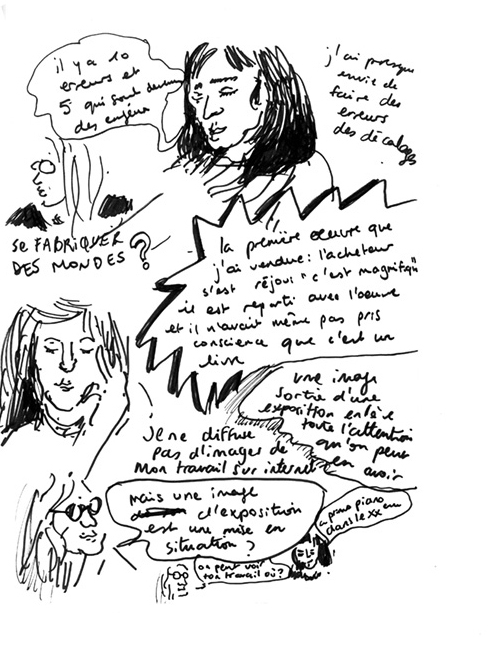 il y a 10
erreurs et
5 qui sont devenu
des enjeux
j'ai presque
envie de
faire des
erreurs
des décalages
SE FABRIQUER
DES MONDES ?
la première oeuvre que
j'ai vendue : l'acheteur
s'est réjoui "c'est magnifiqu
il est reparti avec l'oeuvre
et il n'avait même pas pris
conscience que c'est un
livre
une image
sortie d'une
exposition enlève
toute l'attention
qu'on peut
en avoir
Je ne diffuse
pas d'images de
mon travail sur internet
mais une image
d'exposition
est une mise en
situation ?
a primo piano
dans le XX
on peut voir
ton travail où ?